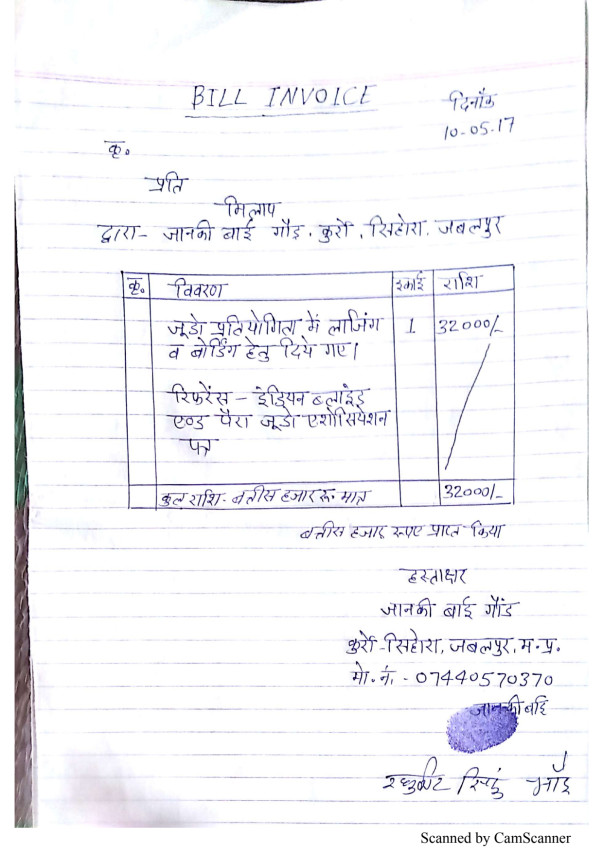 BILL INVOICE
दिनाँक
10-05-17
कृ.
प्रति
मिलाप
द्वारा- जानकी बाई गौड़, कुर्रो, सिहोरा, जबलपुर
कृ. विवरण इकाई राशि
जूडो प्रतियोगिता में लाजिंग 1 32000/-
व बोर्डिंग हेतु दिये गए।
रिफरेंस - इंडियन ब्लाइंड
एण्ड पैरा जूडो एशोसियेशन
पत्र
कुल राशि- बत्तीस हजार रू. मात्र 32000/-
बत्तीस हजार रूपए प्राप्त किया
हस्ताक्षर
जानकी बाई गौंड
कुर्रो-सिहोरा, जबलपुर, म.प्र.
मो. नं. - 07440570370
जानकी बाई
सिंह
Scanned by CamScanner